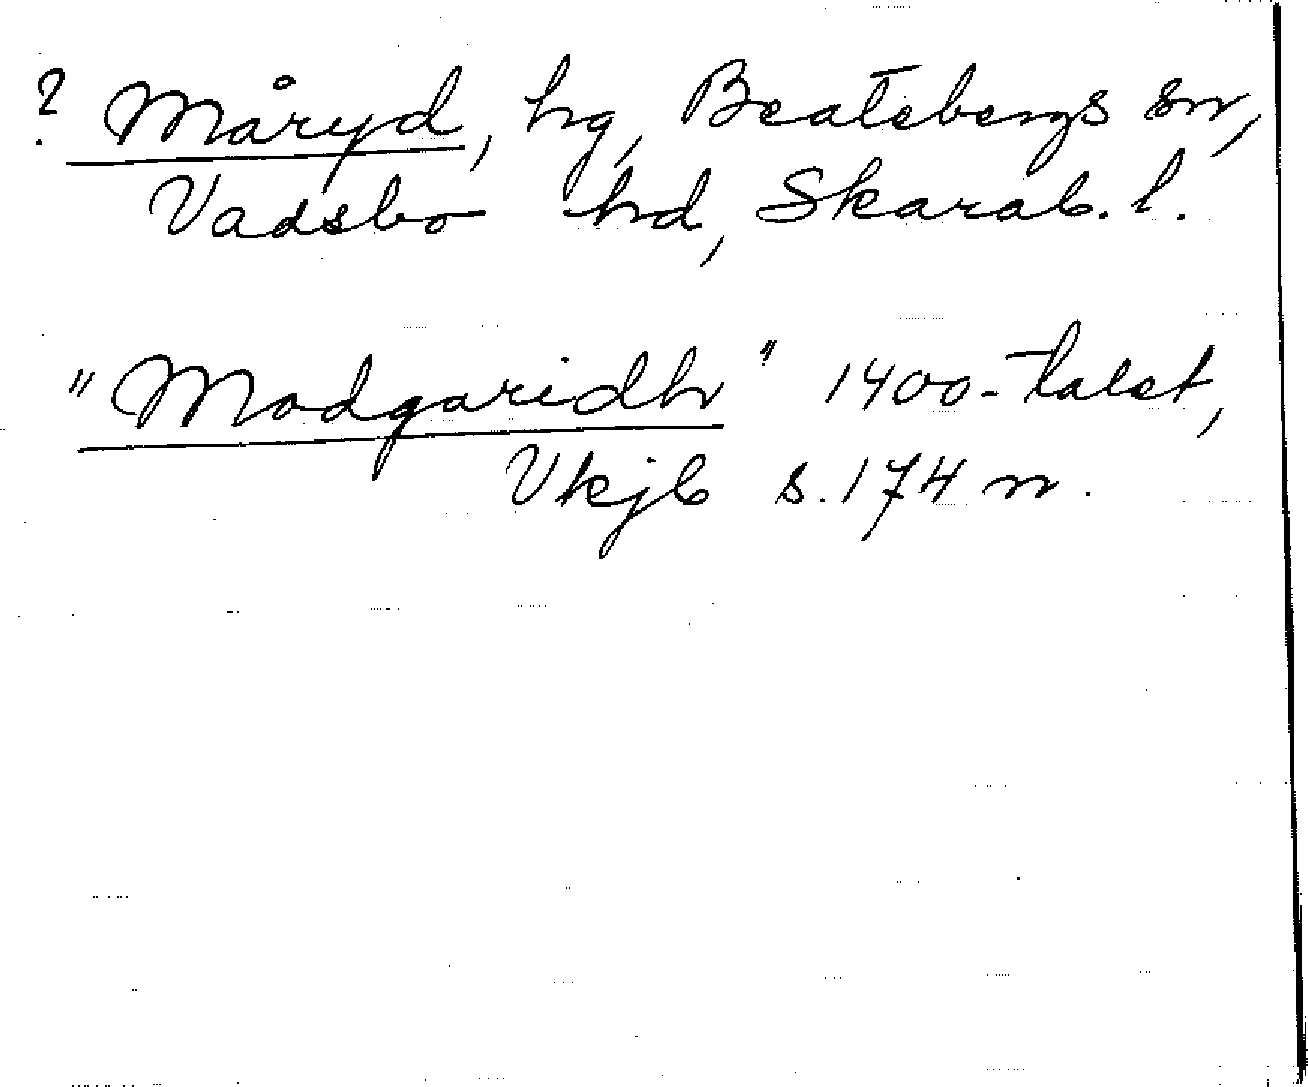 ? Måryd, hg, Beatebergs sn,
Vadsbo hd, Skarab. l.
"Modgaridh" 1400-talet,
Vkjb s. 174 n.